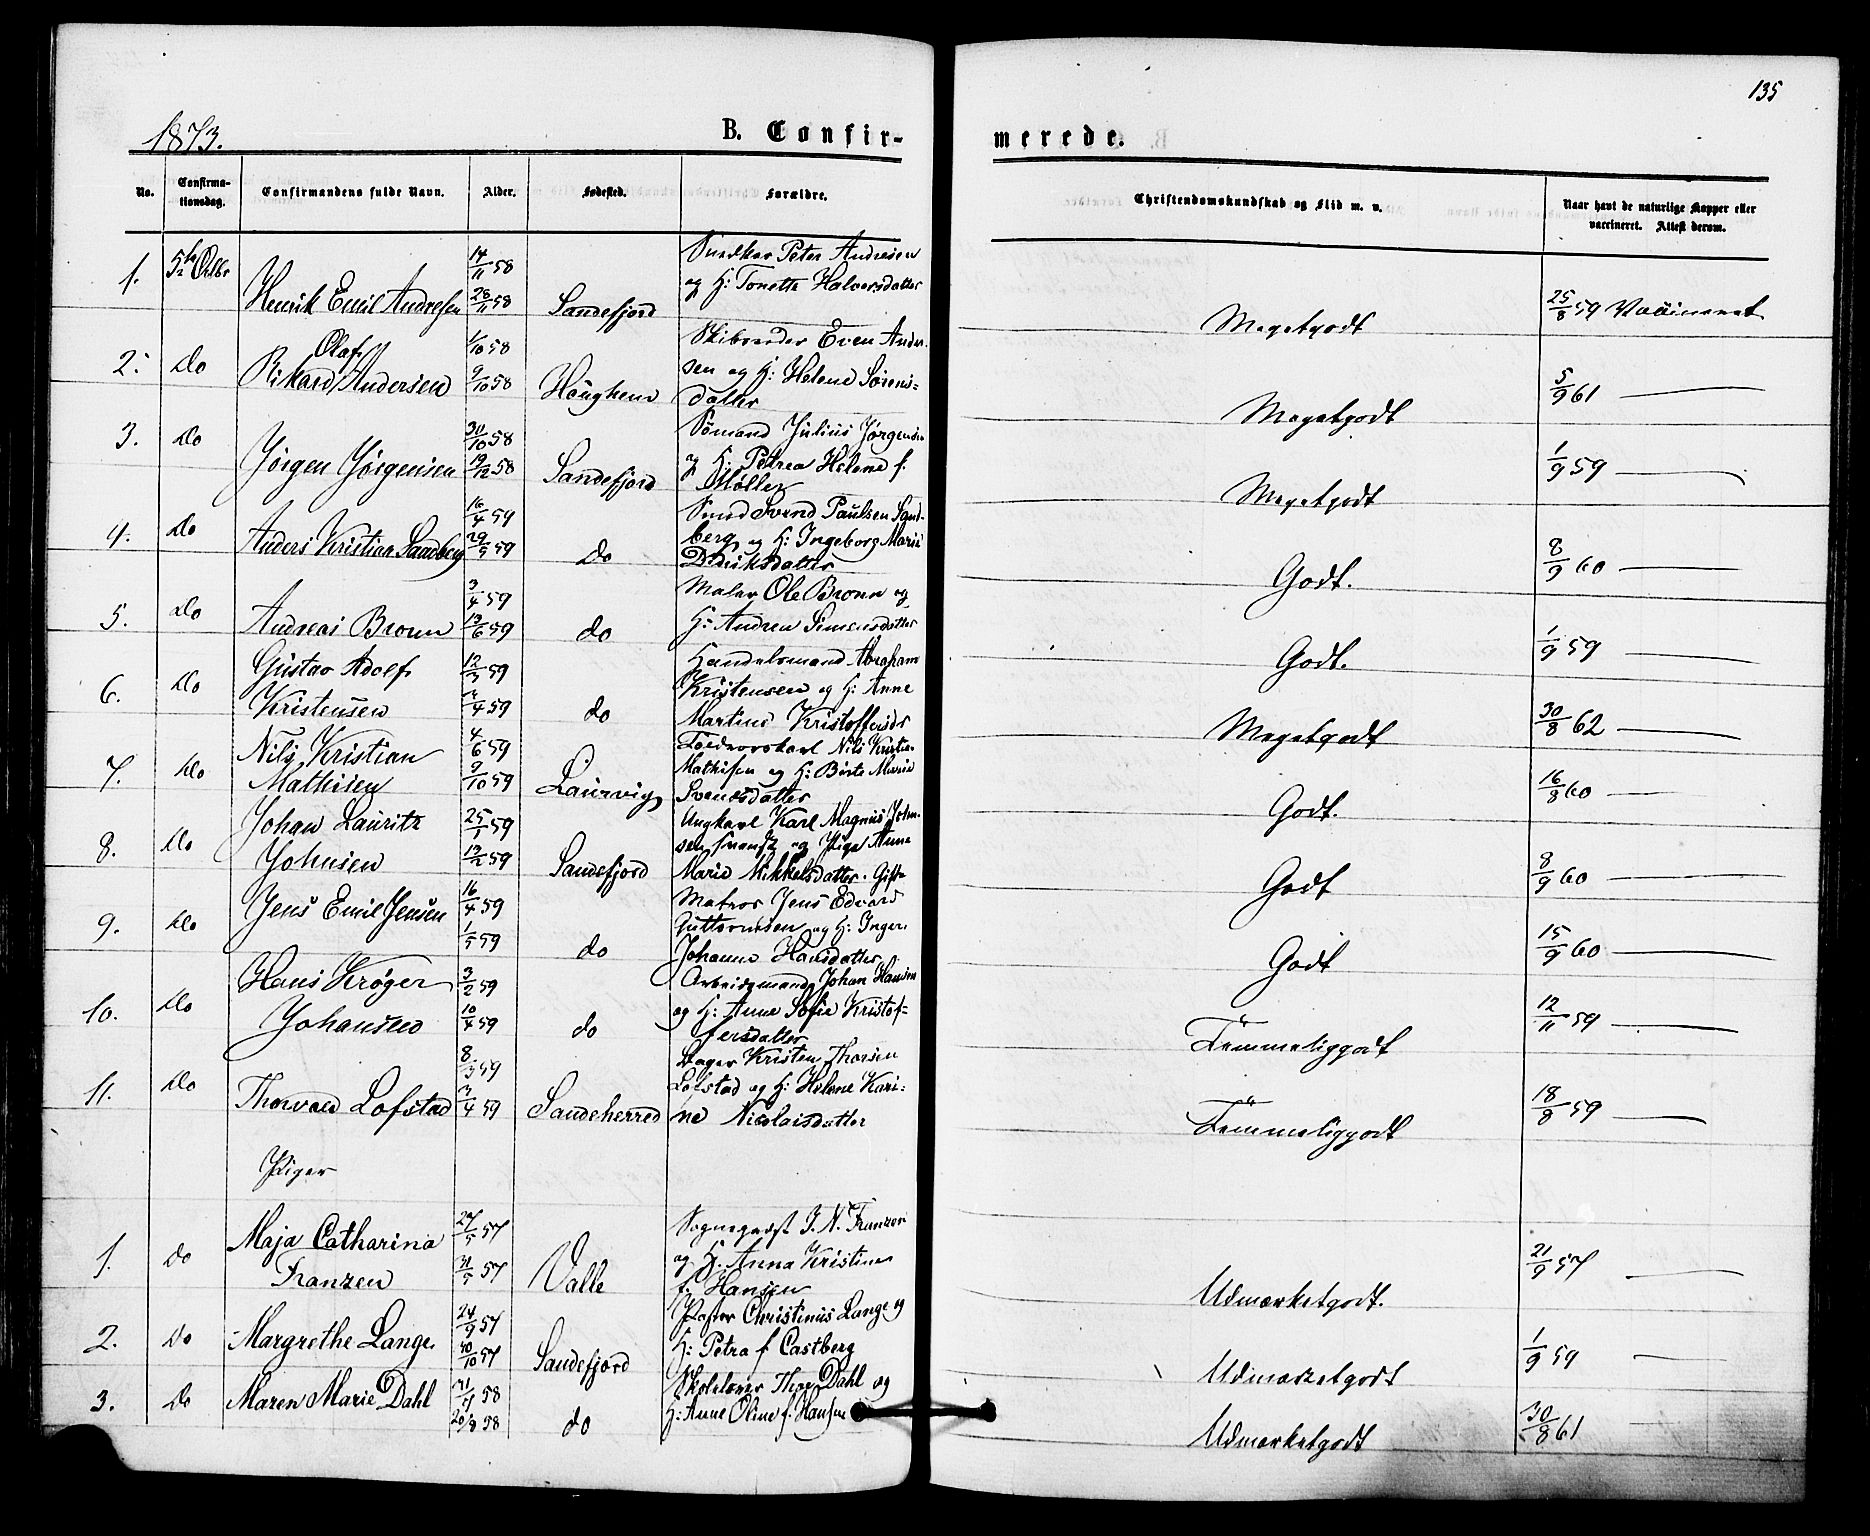 135
1873.
B. Confir-
merede.
No.
Confirma-
tionsdag.
Confirmandens fulde Navn.
Alder.
Fødested.
Forældre.
Christendomskundskab og Flid m. v.
Naar havt de naturlige Kopper eller
vaccineret. Attest derom.
1. 5te Octbr
Henrik Emil Andresen
14/11 58
28/11 58
Sandefjord
Snedker Peter Andresen
og H: Tonette Halvorsdatter
Megetgodt
25/8 59 Vaccineret
2. Do
Olaf
Rikard Andersen
1/10 58
9/10 58
Haughem
Even Ander-
sen og H: Helene Sørens-
datter
Megetgodt
5/9 61
3. Do
Jørgen Jørgensen
30/10 58
19/12 58
Sandefjord
Sömand Julius Jørgensen
og H: Petrea Helene f.
Møller
Megetgodt
1/9 59
4. Do
Anders Kristian Sandberg
16/4 59
29/5 59
do
Smed Svend Paulsen Sand-
berg og H: Ingeborg Marie
Didriksdatter
Godt.
8/9 60
5. Do
Andreas Bronn
3/4 59
13/6 59
do
Maler Ole Bronn og
H: Andrea Simensdatter
Godt.
1/9 59
6. Do
Gustav Adolf
Kristensen
12/3 59
3/4 59
do
Handelsmand Abraham
Kristensen og H: Anne
Martine Kristoffersdr
Megetgodt
30/8 62
7. Do
Nils Kristian
Mathisen
4/6 59
9/10 59
Laurvig
Nils Kristian
Mathisen og H: Birte Marie
Svendsdatter
Godt.
16/8 60
8. Do
Johan Lauritz
Johnsen
25/1 59
13/2 59
Sandefjord
Ungkarl Karl Magnus John-
sen Svensk og Pige Anne
Marie Mikkelsdatter. Gift
Godt
8/9 60
9. Do
Jens Emil Jensen
16/4 59
1/5 59
do
Matros Jens Edvard
Guttormsen og H: Inger
Johanne Hansdatter
Godt
15/9 60
10. Do
Hans Krøger
Johansen
3/2 59
10/4 59
do
Arbeidsmand Johan Hansen
og H: Anne Sofie Kristof-
fersdatter
Temmeliggodt
12/11 59
11. Do
Thorvald Lofstad
8/3 59
3/4 59
Sandeherred
Bager Kristen Thorsen
Lofstad og H: Helene Kari-
ne Nicolaisdatter
Temmeliggodt
18/8 59
Piger
1. do
Maja Catharina
Franzen
27/5 57
31/5 57
Valle
Sognepræst J. N. Franzen
og H. Anna Kristine
f. Hansen
Udmærketgodt.
21/9 57
2. Do
Margrethe Lange
24/9 57
30/10 57
Sandefjord
Pastor Christinus Lange og
H: Petra f. Castberg
Udmærketgodt
1/9 59
3. Do
Maren Marie Dahl
31/7 58
20/9 58
do
Skolelærer Thor Dahl og
H: Anne Oline f. Hansen
Udmærketgodt
30/8 61